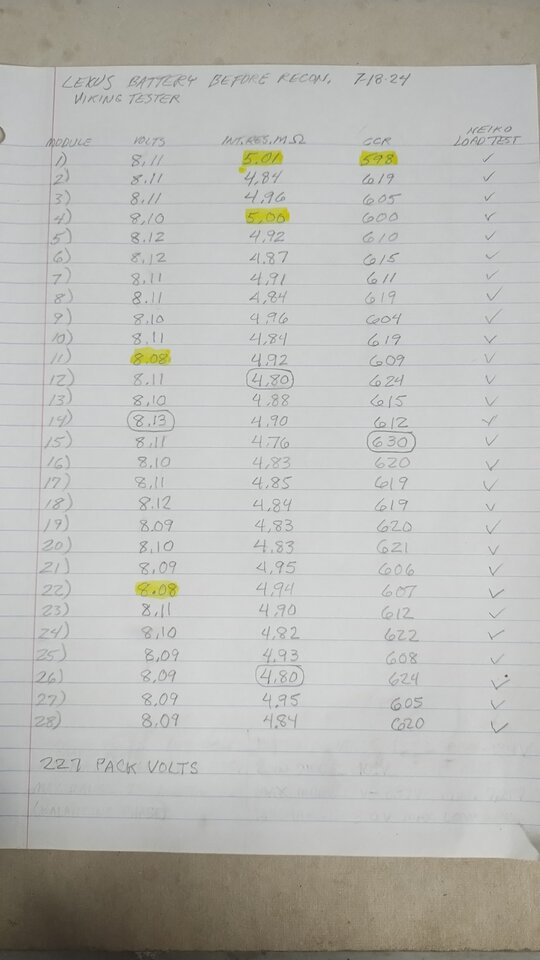 LEXUS BATTERY BEFORE RECON. 7-18-24
VIKING TESTER
MODULE VOLTS INT.RES.MΩ CCA NEIKO LOAD TEST
1) 8,11 5.01 598 ✓
2) 8.11 4,84 619 ✓
3) 8.11 4.96 605 ✓
4) 8,10 5,00 600 ✓
5) 8.12 4.92 610 ✓
6) 8,12 4.87 615 ✓
7) 8.11 4,91 611 ✓
8) 8.11 4,84 619 ✓
9) 8.10 4,96 604 ✓
10) 8.11 4,84 619 ✓
11) 8.08 4,92 609 ✓
12) 8.11 4,80 624 ✓
13) 8,10 4,88 615 ✓
14) 8.13 4,90 612 ✓
15) 8.11 4.76 630 ✓
16) 8,10 4,83 620 ✓
17) 8,11 4,85 619 ✓
18) 8.12 4,84 619 ✓
19) 8.09 4,83 620 ✓
20) 8,10 4.83 621 ✓
21) 8,09 4,95 606 ✓
22) 8.08 4,94 607 ✓
23) 8,11 4,90 612 ✓
24) 8,10 4,82 622 ✓
25) 8,09 4.93 608 ✓
26) 8,09 4,80 624 ✓
27) 8,09 4.95 605 ✓
28) 8.09 4.84 620 ✓
227 PACK VOLTS